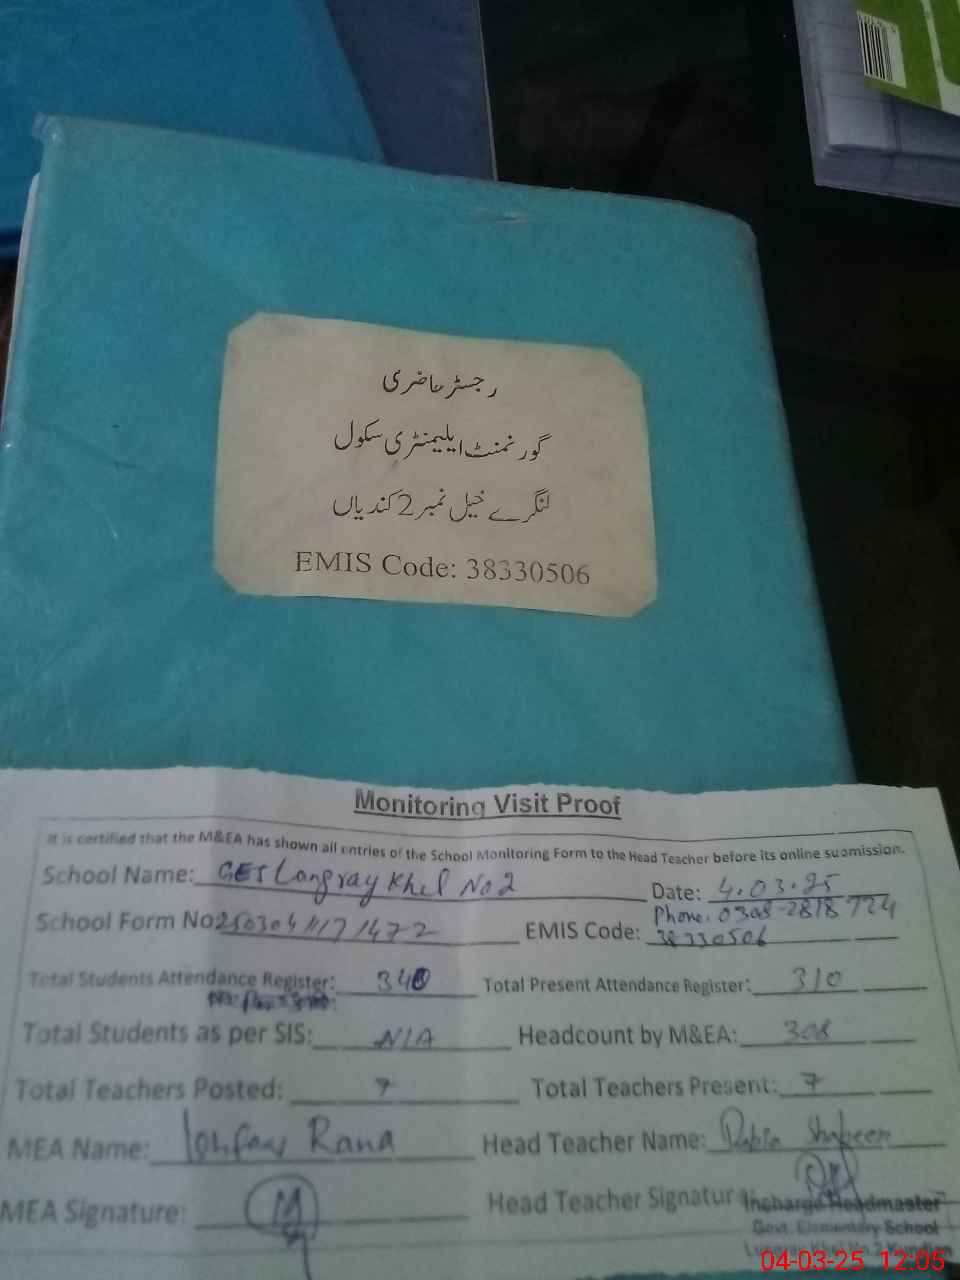 رجسٹر حاضری
گورنمنٹ ایلیمنٹری سکول
لنگرے خیل نمبر 2 کندیاں
EMIS Code: 38330506
Monitoring Visit Proof
It is certified that the M&EA has shown all entries of the School Monitoring Form to the Head Teacher before its online submission.
School Name: GES Langray Khel No 2 Date: 4.03.25
Phone. 0308-2818724
School Form No: EMIS Code: 38330506
Total Students Attendance Register: 340 Total Present Attendance Register: 310
Total Students as per SIS: N/A Headcount by M&EA: 308
Total Teachers Posted: 7 Total Teachers Present: 7
MEA Name: Rana Head Teacher Name: Shaheen
MEA Signature: Head Teacher Signature
Incharge Headmaster
Govt. Elementary School
Langray Khel No.2 Kundian
04-03-25 12:05